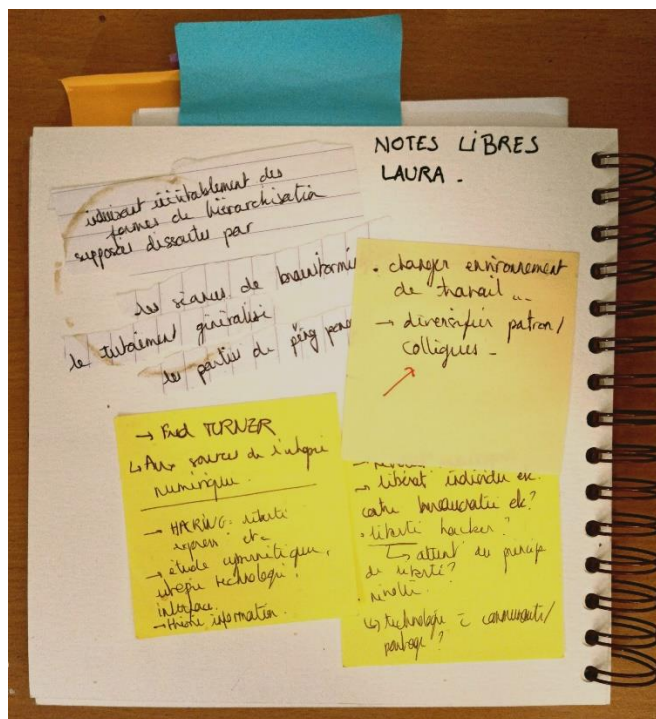 NOTES LIBRES
LAURA.
induisent inévitablement des
formes de hiérarchisation
supposées dissoutes par
les séances de brainstormin
le tutoiement généralisé
les parties de ping pong
. changer environnement
de travail ...
→ diversifier patron/
collègues -
→ Fred TURNER
↳ Aux sources de l'utopie
numérique.
→ HACKING: liberté
express etc
→ étude cybernétique,
utopie technologie,
interface.
→ théorie information.
→ libérat individu ex
contre bureaucratie etc?
. liberté hacker?
↳ atteint au principe
de liberté?
↳ technologie = communauté/
partage?